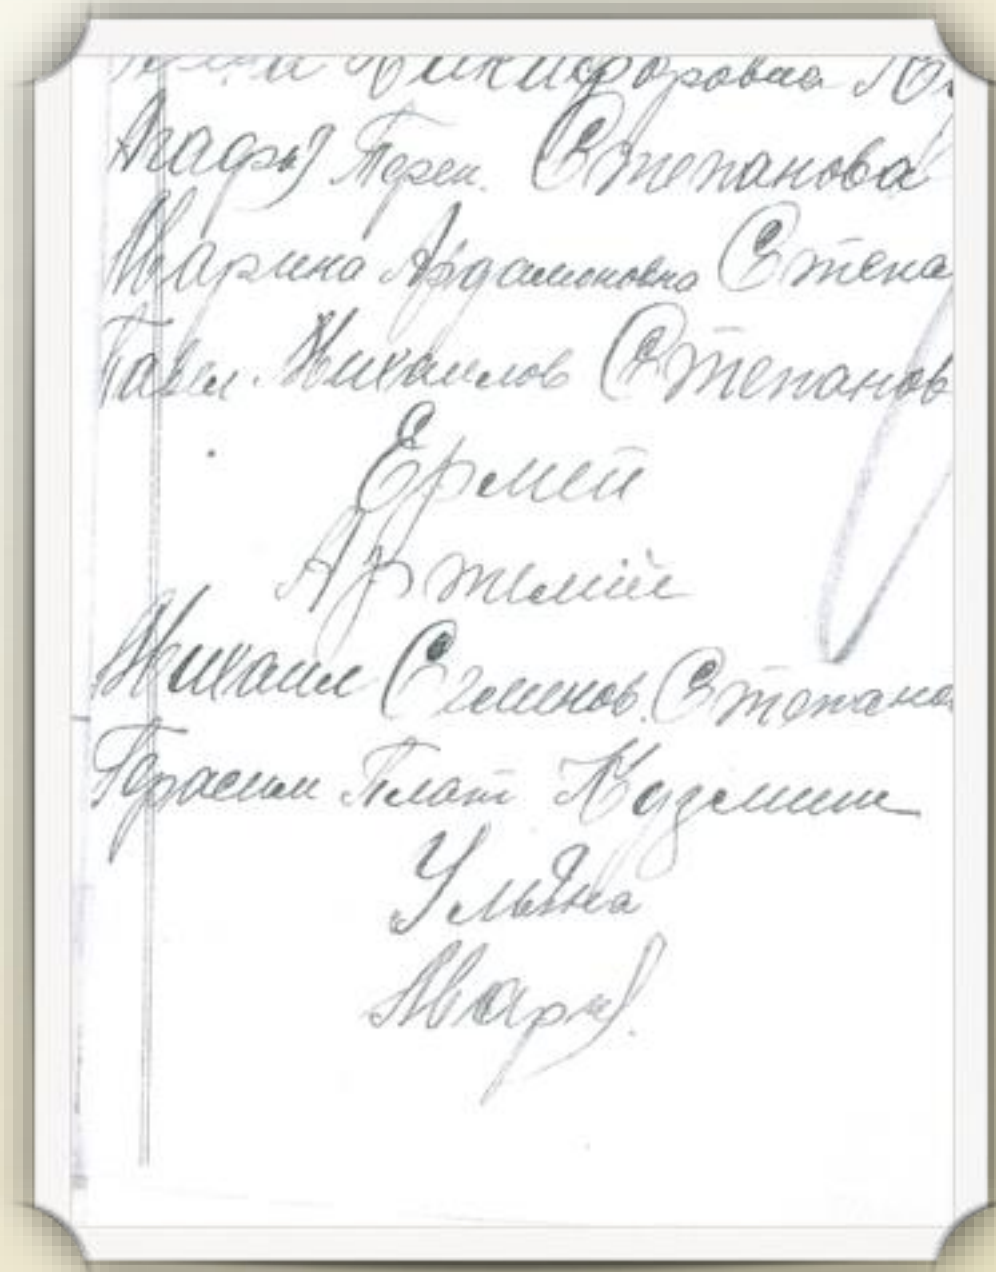 Никифоровна
Агафья Терен. Степанова
Марина Ардамоновна Степа
Павел Михаилов Степанов
Ермей
Артемий
Михаил Семенов. Степано
Герасим Плат Кузмин
Ульяна
Марья.